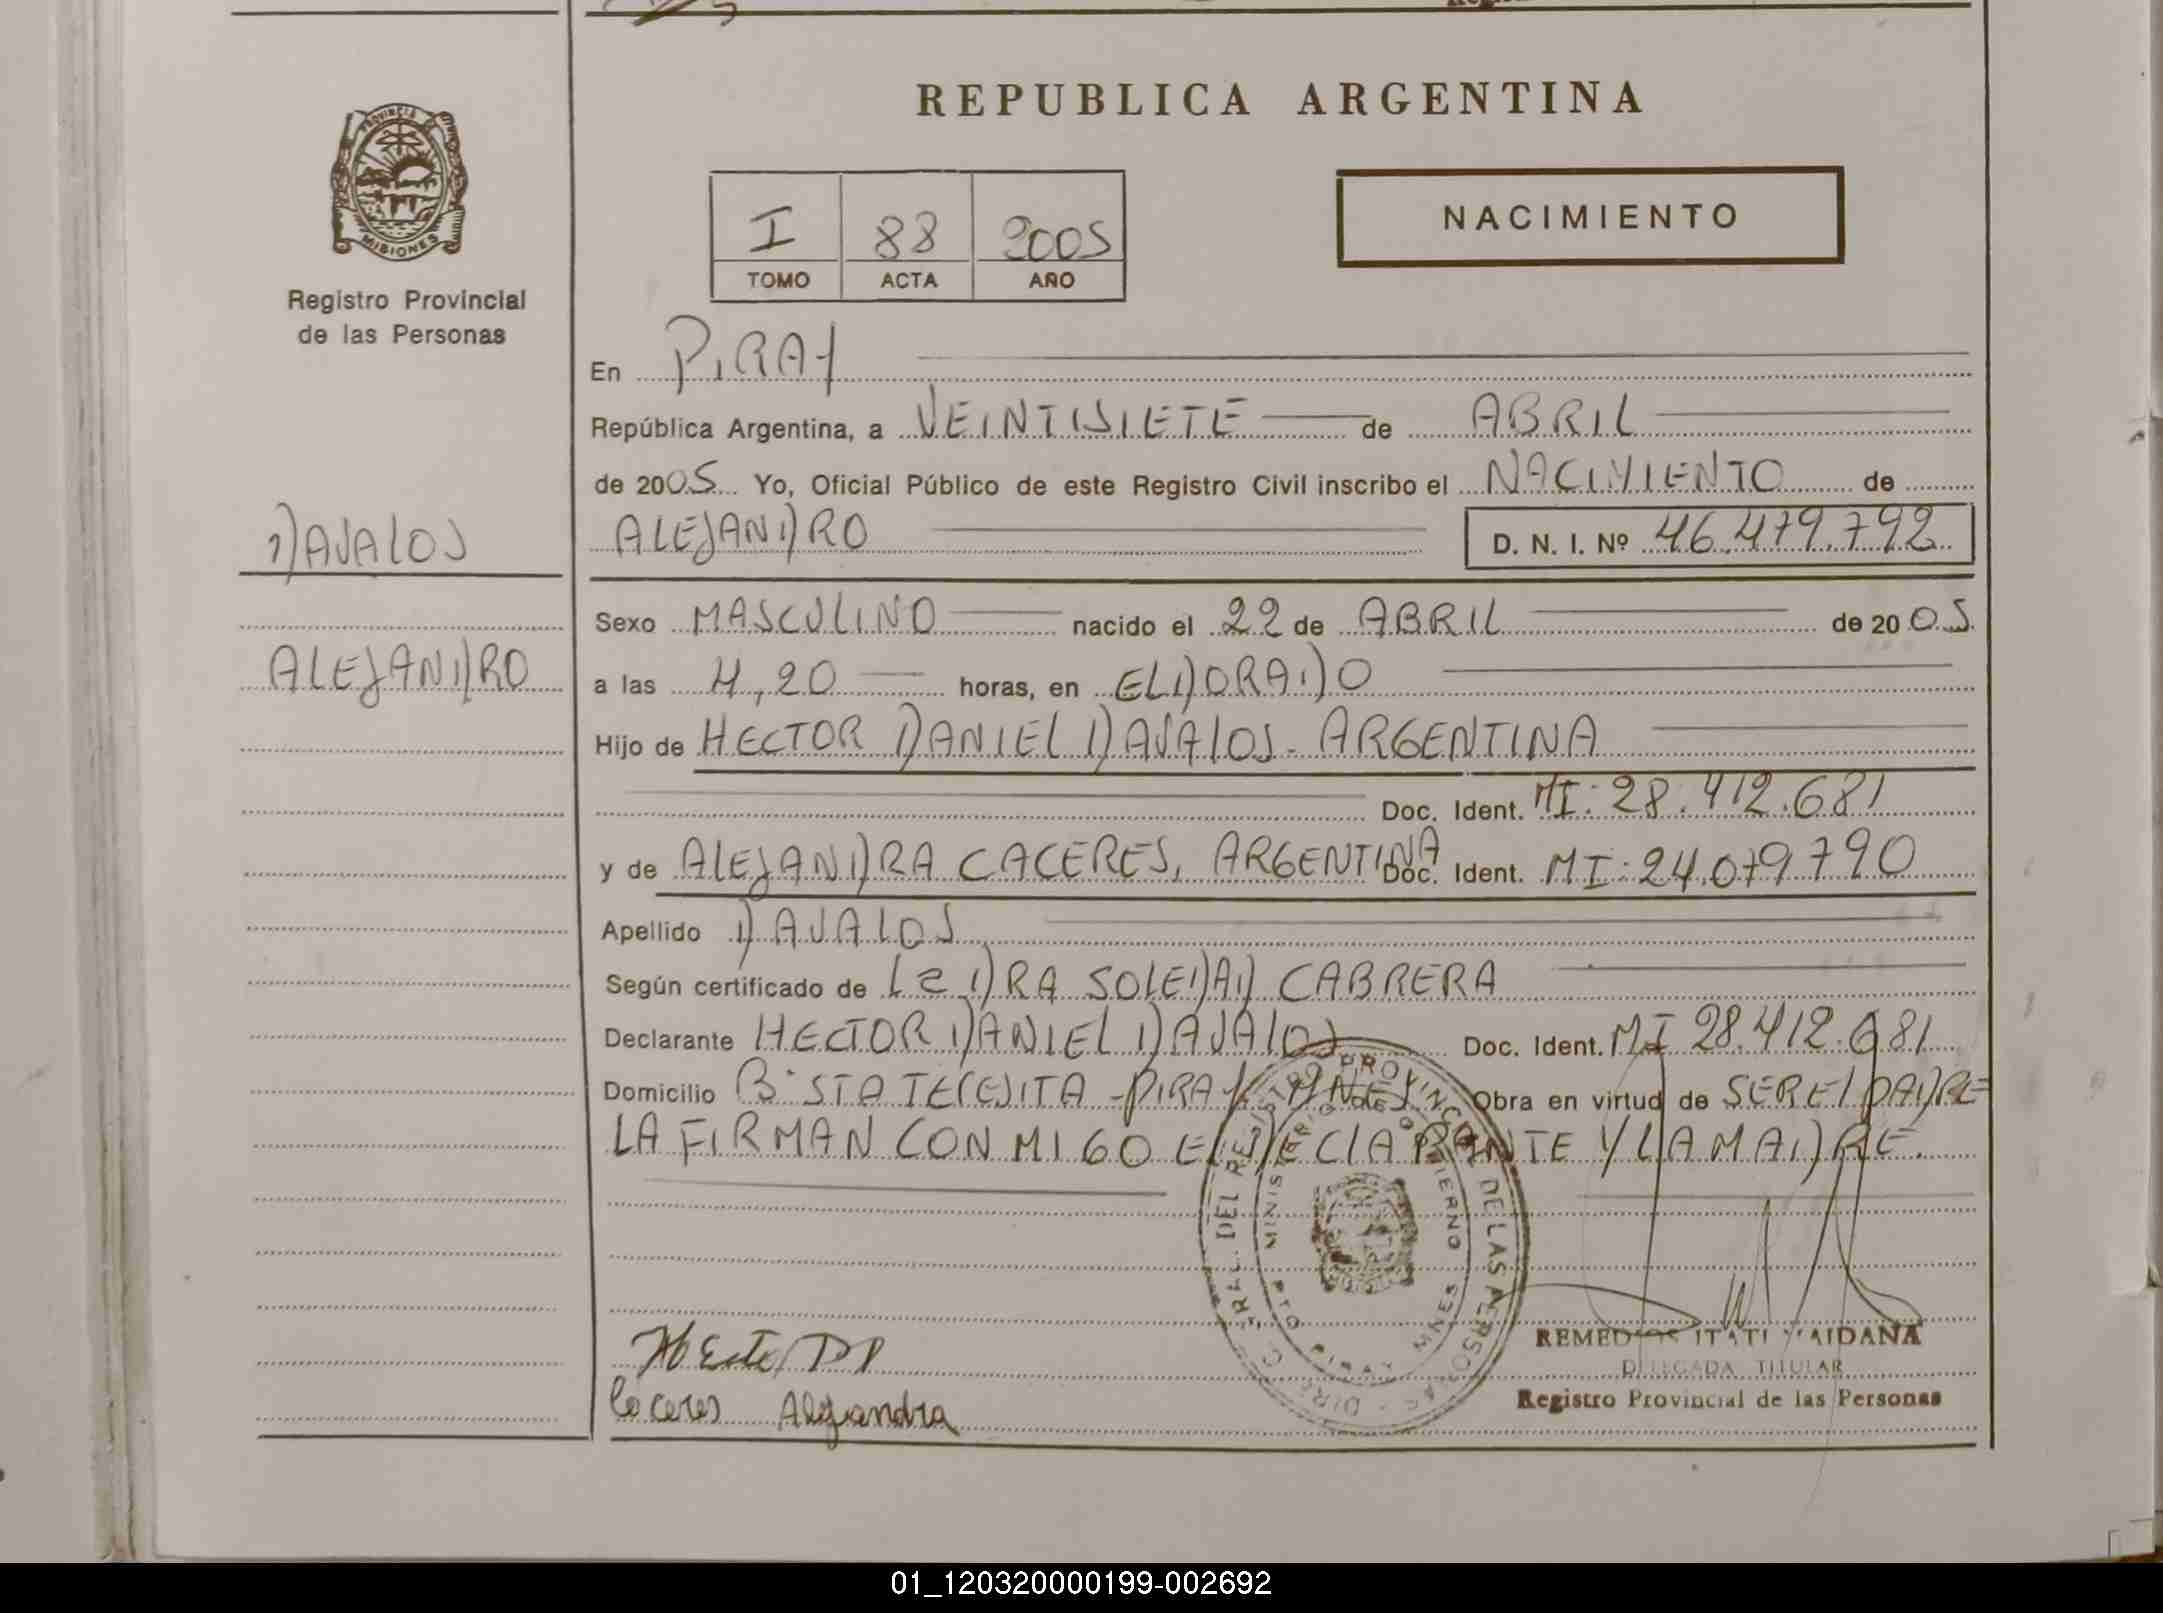 REPUBLICA ARGENTINA
PROVINCIA DE
MISIONES
Registro Provincial
de las Personas
I 88 2005
TOMO ACTA AÑO
NACIMIENTO
En PIRAY
República Argentina, a VEINTISIETE de ABRIL
de 2005 Yo, Oficial Público de este Registro Civil inscribo el NACIMIENTO de
DAVALOS
ALEJANDRO
D. N. I. Nº 46.479.792
Sexo MASCULINO nacido el 22 de ABRIL de 2005
ALEJANDRO
a las 4,20 horas, en ELDORADO
Hijo de HECTOR DANIEL DAVALOS - ARGENTINA
Doc. Ident. MI: 28.412.681
y de ALEJANDRA CACERES, ARGENTINA Doc. Ident. MI: 24.079790
Apellido DAVALOS
Según certificado de DRA SOLEDAD CABRERA
Declarante HECTOR DANIEL DAVALOS Doc. Ident. MI 28.412.681
Domicilio Bº STA TERESITA - PIRAY MNES Obra en virtud de SER EL PADRE
LA FIRMAN CON MIGO EL DECLARANTE Y LA MADRE.
DIREC. GRAL. DEL REGISTRO PROVINCIAL DE LAS PERSONAS
MINISTERIO DE GOBIERNO
PTO PIRAY MNES
REMEDIOS ITATI MAIDANA
DELEGADA TITULAR
Registro Provincial de las Personas
Caceres Alejandra
01_120320000199-002692